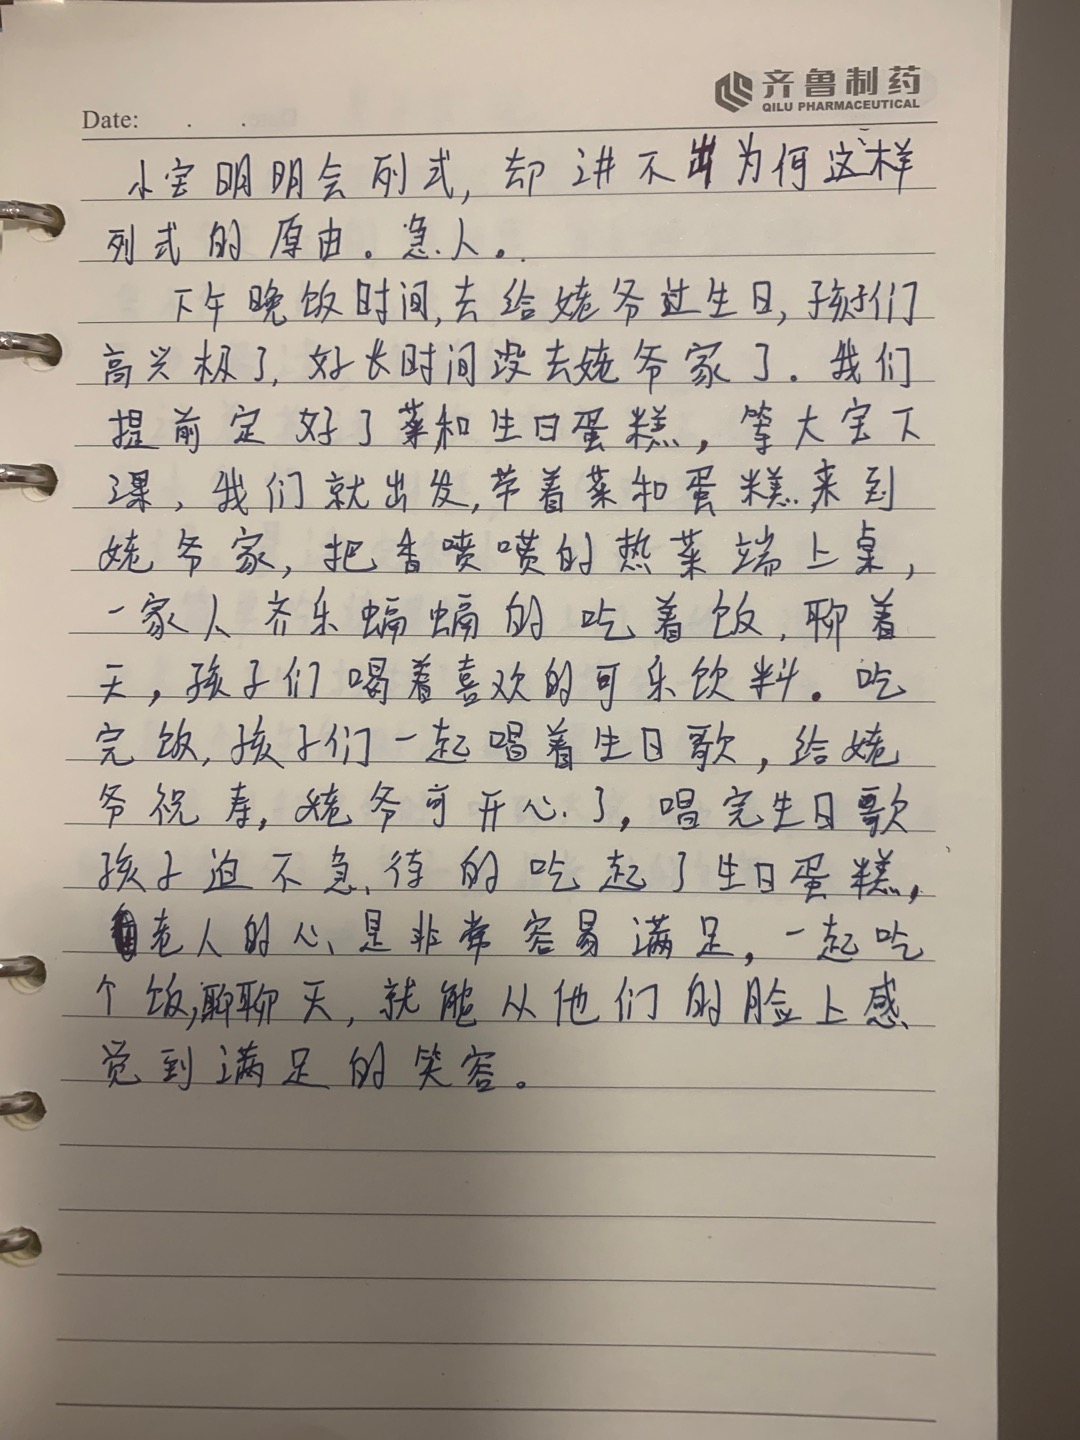 齐鲁制药
QILU PHARMACEUTICAL
Date: . .
小宝明明会列式，却讲不出为何这样
列式的原由。急人。
下午晚饭时间，去给姥爷过生日，孩子们
高兴极了，好长时间没去姥爷家了。我们
提前定好了菜和生日蛋糕，等大宝下
课，我们就出发，带着菜和蛋糕来到
姥爷家，把香喷喷的热菜端上桌，
一家人齐乐蝙蝙的吃着饭，聊着
天，孩子们喝着喜欢的可乐饮料。吃
完饭，孩子们一起唱着生日歌，给姥
爷祝寿，姥爷可开心了，唱完生日歌
孩子迫不急待的吃起了生日蛋糕，
老人的心是非常容易满足，一起吃
个饭，聊聊天，就能从他们的脸上感
觉到满足的笑容。